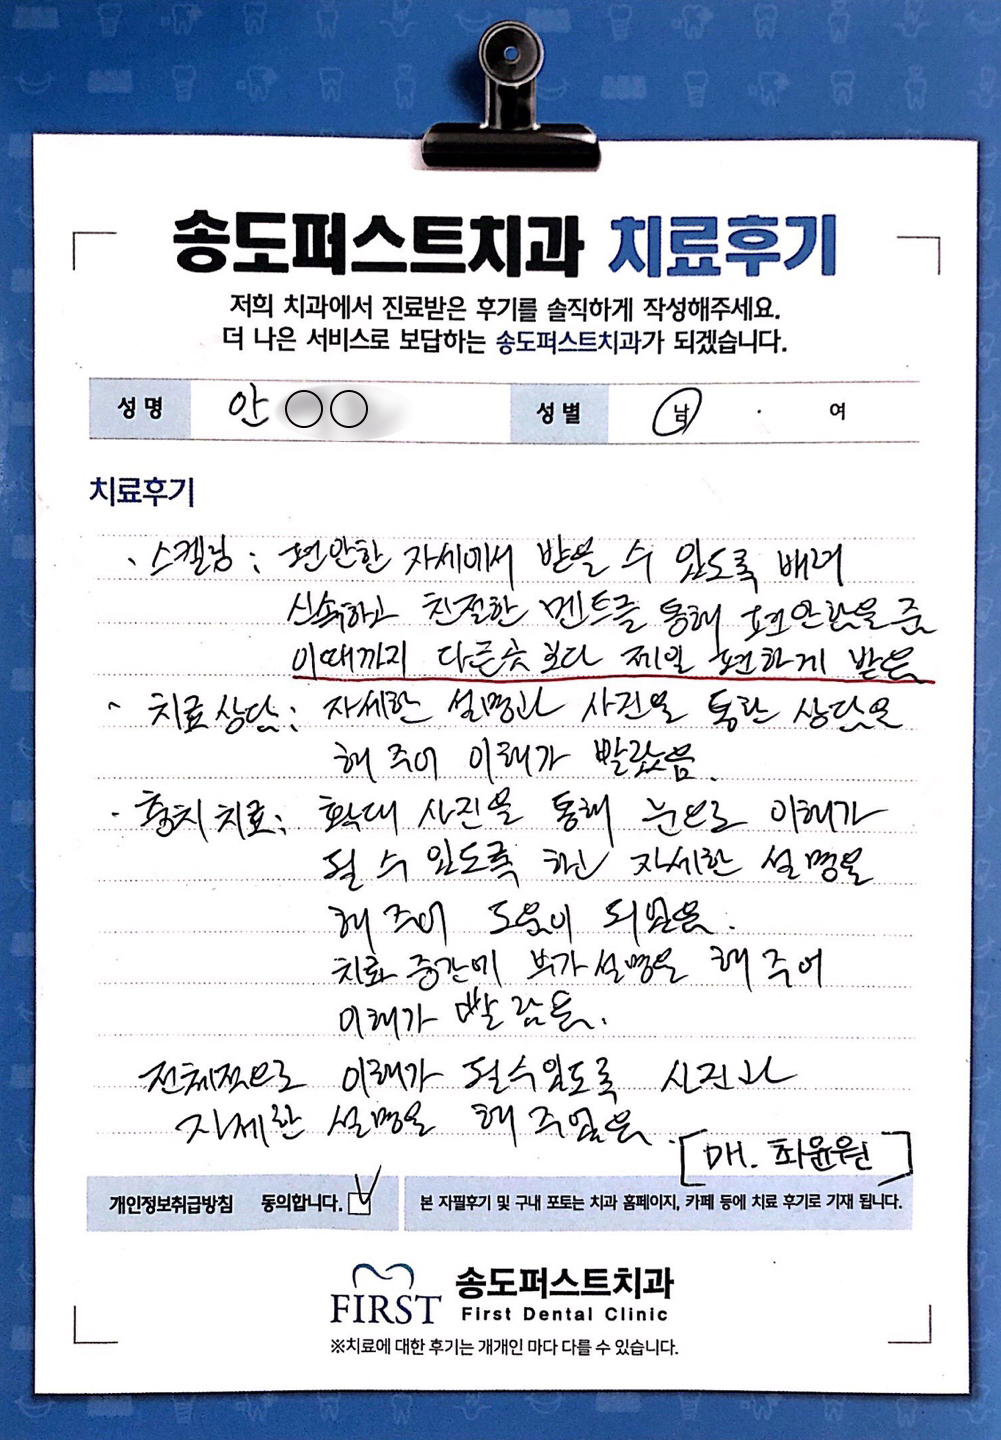 송도퍼스트치과 치료후기
저희 치과에서 진료받은 후기를 솔직하게 작성해주세요.
더 나은 서비스로 보답하는 송도퍼스트치과가 되겠습니다.
성명 안○○ 성별 남 · 여
치료후기
· 스켈링 : 편안한 자세에서 받을 수 있도록 배려
신속하고 친절한 멘트를 통해 편안함을 줌
이때까지 다른곳보다 제일 편하게 받음
· 치료상담 : 자세한 설명과 사진을 통한 상담을
해 주어 이해가 빨랐음.
· 충치 치료 : 확대 사진을 통해 눈으로 이해가
될 수 있도록 하고 자세한 설명을
해 주어 도움이 되었음.
치료 중간에 부가설명을 해 주어
이해가 빨랐음.
전체적으로 이해가 될수있도록 사진과
자세한 설명을 해 주었음.
[DH. 최윤원]
개인정보취급방침 동의합니다. ☑
본 자필후기 및 구내 포토는 치과 홈페이지, 카페 등에 치료 후기로 기재 됩니다.
FIRST 송도퍼스트치과
First Dental Clinic
※치료에 대한 후기는 개개인 마다 다를 수 있습니다.